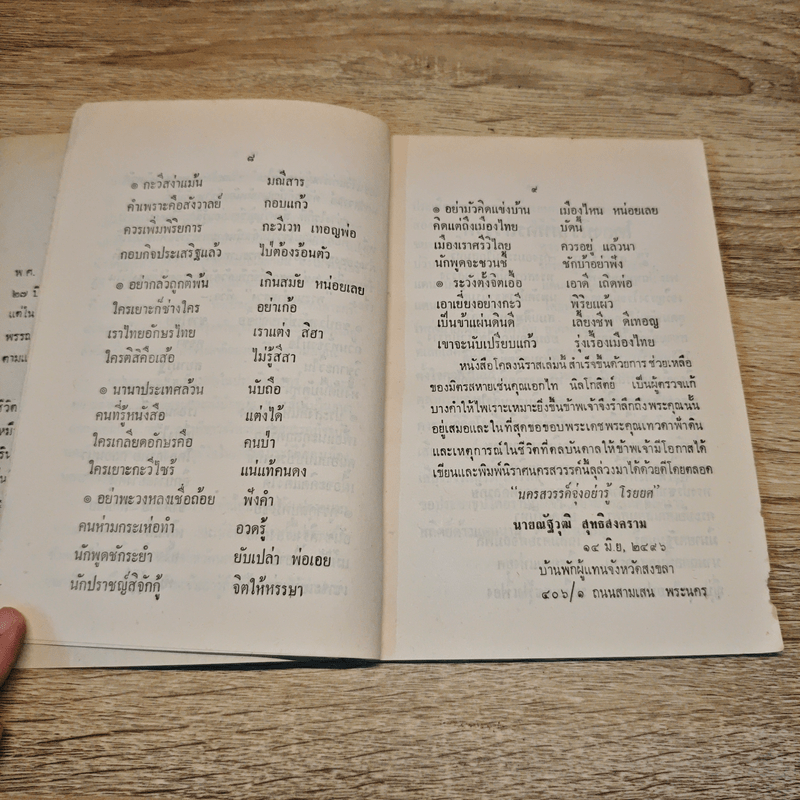 พ ศ.
๒๗ ปี
แต่ใน
พรรณ
ตามแ
๘
๏ กะวีสง่าแม้น มณีสาร
คำเพราะคือสังวาลย์ กอบแก้ว
ควรเพิ่มพิริยการ กะวีเวท เทอญพ่อ
กอบกิจประเสริฐแล้ว ไป่ต้องร้อนตัว
๏ อย่ากลัวถูกติพ้น เกินสมัย หน่อยเลย
ใครเยาะก็ช่างใคร อย่าเก้อ
เราไทยอักษรไทย เราแต่ง สิฮา
ใครติสิคือเส้อ ไม่รู้สีสา
๏ นานาประเทศล้วน นับถือ
คนที่รู้หนังสือ แต่งได้
ใครเกลียดอักษรคือ คนป่า
ใครเยาะกะวีไซร้ แน่แท้คนดง
๏ อย่าพะวงหลงเชื่อถ้อย ฟังคำ
คนห่ามกระเห่อทำ อวดรู้
นักพูดชักระยำ ยับเปล่า พ่อเอย
นักปราชญ์สิจักกู้ จิตให้หรรษา
๙
๏ อย่ามัวคิดแข่งบ้าน เมืองไหน หน่อยเลย
คิดแต่ถึงเมืองไทย บัดนี้
เมืองเราศรีวิไลย ควรอยู่ แล้วนา
นักพูดจะชวนชี้ ชักบ้าอย่าพึง
๏ ระวังตั้งจิตเอื้อ เอาดี เถิดพ่อ
เอาเยี่ยงอย่างกะวี พิริยแผ้ว
เป็นข้าแผ่นดินดี เลี้ยงชีพ ดีเทอญ
เขาจะนับเปรียบแก้ว รุ่งเรื่องเมืองไทย
หนังสือโคลงนิราสเล่มนี้ สำเร็จขึ้นด้วยการ ช่วยเหลือ
ของมิตรสหายเช่นคุณเอกไท นิลโกสัตย์ เป็นผู้ตรวจแก้
บางคำให้ไพเราะเหมาะยิ่งขึ้นข้าพเจ้าจึงรำลึกถึงพระคุณนั้น
อยู่เสมอและในที่สุดขอขอบพระเดชพระคุณเทวดาฟ้าดิน
และเหตุการณ์ในชีวิตที่ดลบันดาลให้ข้าพเจ้ามีโอกาสได้
เขียนและพิมพ์นิราศนครสวรรค์นี้ลุล่วงมาได้ด้วยดีโดยตลอด
“นครสวรรค์จุ่งอย่ารู้ โรยยศ”
นายณัฐวุฒิ สุทธิสงคราม
๑๔ มิย, ๒๔๙๖
บ้านพักผู้แทนจังหวัดสงขลา
๔๐๖/๑ ถนนสามเสน พระนคร